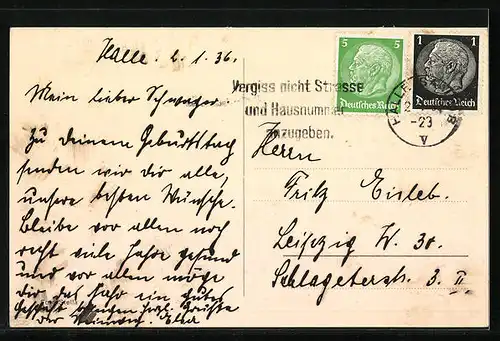 Halle. 2.1.36.
Mein lieber Schwager.
Zu deinem Geburtstag
senden wir dir alle,
unsere besten Wünsche.
Bleibe vor allen noch
recht viele Jahre gesund
und vor allen möge
dir das Jahr ein gutes
Geschäft bringen herzl. Grüsse
der Deinigen
5 5
Deutsches Reich
1 1
Deutsches Reich
Vergiss nicht Strasse
und Hausnummer
anzugeben.
-23
V
Herrn
Fritz Eisleb.
Leipzig W. 30.
Schlageterstr. 3. II